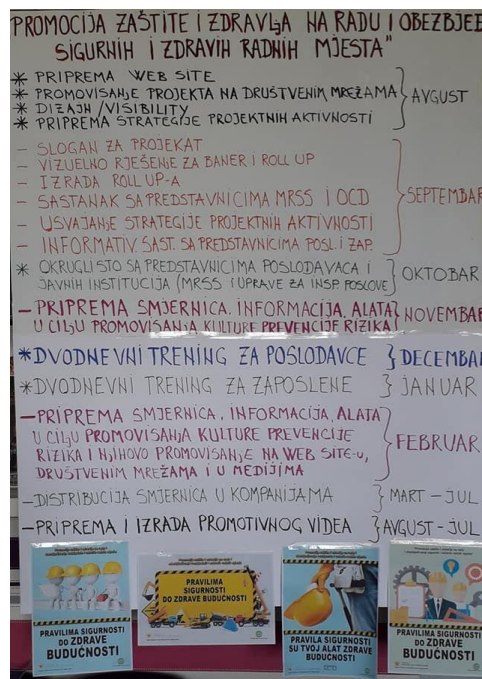 "PROMOCIJA ZAŠTITE I ZDRAVLJA NA RADU I OBEZBJEĐ
SIGURNIH I ZDRAVIH RADNIH MJESTA"
* PRIPREMA WEB SITE
* PROMOVISANJE PROJEKTA NA DRUŠTVENIM MREŽAMA
* DIZAJN/VISIBILITY
* PRIPREMA STRATEGIJE PROJEKTNIH AKTIVNOSTI
AVGUST
- SLOGAN ZA PROJEKAT
- VIZUELNO RJEŠENJE ZA BANER I ROLL UP
- IZRADA ROLL UP-A
- SASTANAK SA PREDSTAVNICIMA MRSS I OCD
- USVAJANJE STRATEGIJE PROJEKTNIH AKTIVNOSTI
- INFORMATIV. SAST. SA PREDSTAVNICIMA POSL. I ZAP.
SEPTEMBAR
* OKRUGLI STO SA PREDSTAVNICIMA POSLODAVACA I
JAVNIH INSTITUCIJA (MRSS I UPRAVE ZA INSP. POSLOVE)
OKTOBAR
- PRIPREMA SMJERNICA, INFORMACIJA, ALATA
U CILJU PROMOVISANJA KULTURE PREVENCIJE RIZIKA
NOVEMBAR
* DVODNEVNI TRENING ZA POSLODAVCE } DECEMBAR
* DVODNEVNI TRENING ZA ZAPOSLENE } JANUAR
- PRIPREMA SMJERNICA, INFORMACIJA, ALATA
U CILJU PROMOVISANJA KULTURE PREVENCIJE
RIZIKA I NJIHOVO PROMOVISANJE NA WEB SITE-U,
DRUŠTVENIM MREŽAMA I U MEDIJIMA
FEBRUAR
- DISTRIBUCIJA SMJERNICA U KOMPANIJAMA } MART - JUL
- PRIPREMA I IZRADA PROMOTIVNOG VIDEA } AVGUST - JUL
PRAVILIMA SIGURNOSTI
DO ZDRAVE
BUDUĆNOSTI
PRAVILIMA
SIGURNOSTI
DO ZDRAVE BUDUĆNOSTI
PRAVILA SIGURNOSTI
SU TVOJ ALAT ZDRAVE
BUDUĆNOSTI
PRAVILIMA SIGURNOSTI
DO ZDRAVE
BUDUĆNOSTI